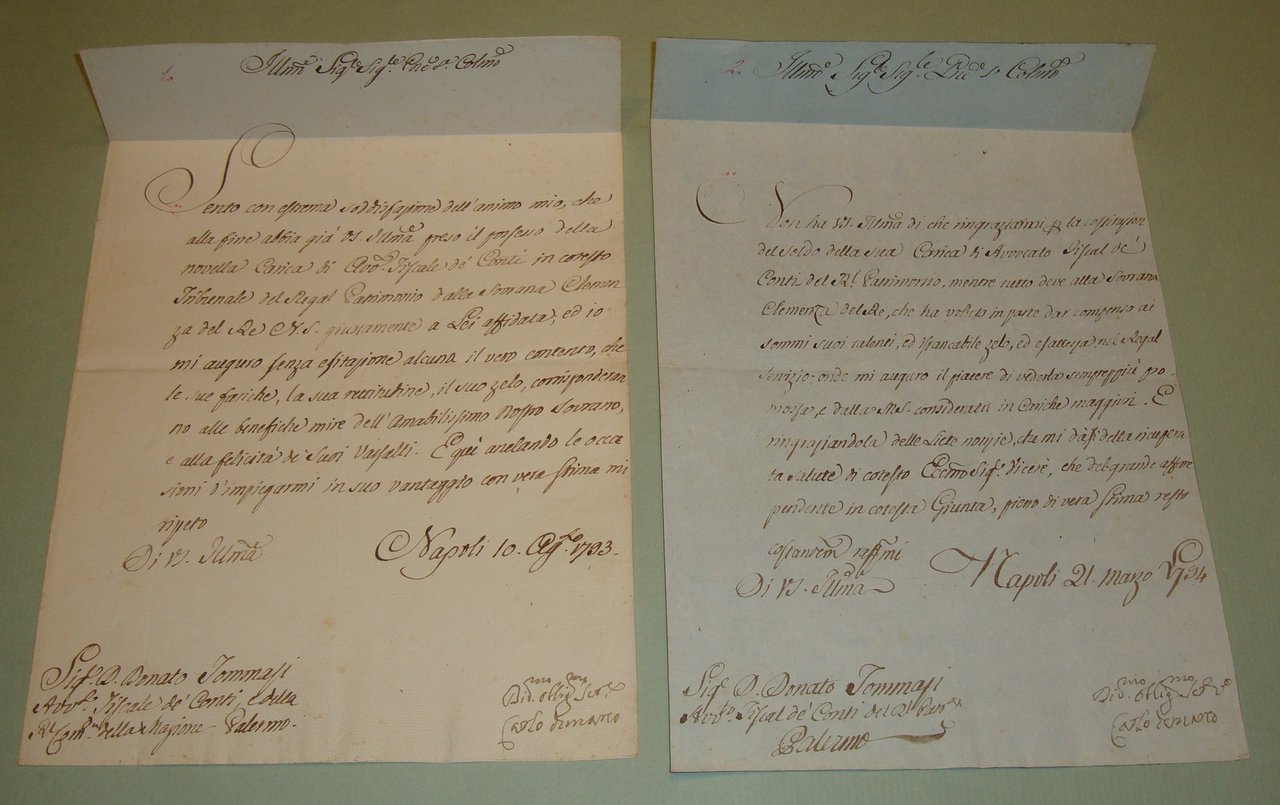 1.
Illmo Sigre Sigre Pne Colmo
Sento con estrema soddisfazione dell'animo mio, che
alla fine abbia già VS. Illma preso il possesso della
novella Carica di Avvo. Fiscale de' Conti in cotesto
Tribunale del Regal Patrimonio dalla Sovrana Clemen
za del Re N.S. giustamente a Lei affidata, ed io
mi auguro senza esitazione alcuna il vero contento, che
le sue fatiche, la sua rettitudine, il suo zelo, corrisponderan
no alle benefiche mire dell'Amabilissimo Nostro Sovrano,
e alla felicità de' Suoi Vassalli. E quì anelando le occa
sioni d'impiegarmi in suo vantaggio con vera stima mi
ripeto
Di VS. Illma
Napoli 10. Agto 1793.
Sigr. D. Donato Tommasi
Avvo. Fiscale de' Conti, e della
Rl. Comda. della Magione - Palermo -
Divmo. obligmo Serre
Carlo demarco
2.
Illmo Sigre Sigre Pne Colmo
Non ha VS. Illma di che ringraziarmi p la
del soldo della sua Carica di Avvocato Fiscal de'
Conti del Rl. Patrimonio, mentre tutto deve alla Sovrana
Clemenza del Re, che ha voluto in parte dar compenso ai
sommi suoi talenti, ed instancabile zelo, ed esattezza nel Regal
Servizio; onde mi auguro il piacere di vederla sempreppiù pro-
mosso, e dalla M.S. considerata in Cariche maggiori. E
ringraziandola delle Liete notizie, che mi dà, sì della ricupera
ta salute di cotesto Eccmo Sigr. Vicerè, che del grande affare
pendente in cotesta Giunta, pieno di vera stima resto
costantem raffmi
Di VS. Illma
Napoli 21. marzo 1794
Sigr. D. Donato Tommasi
Avvo. Fiscal de' Conti del Rl. Patrio
Palermo
Divmo. obligmo Serre
Carlo demarco